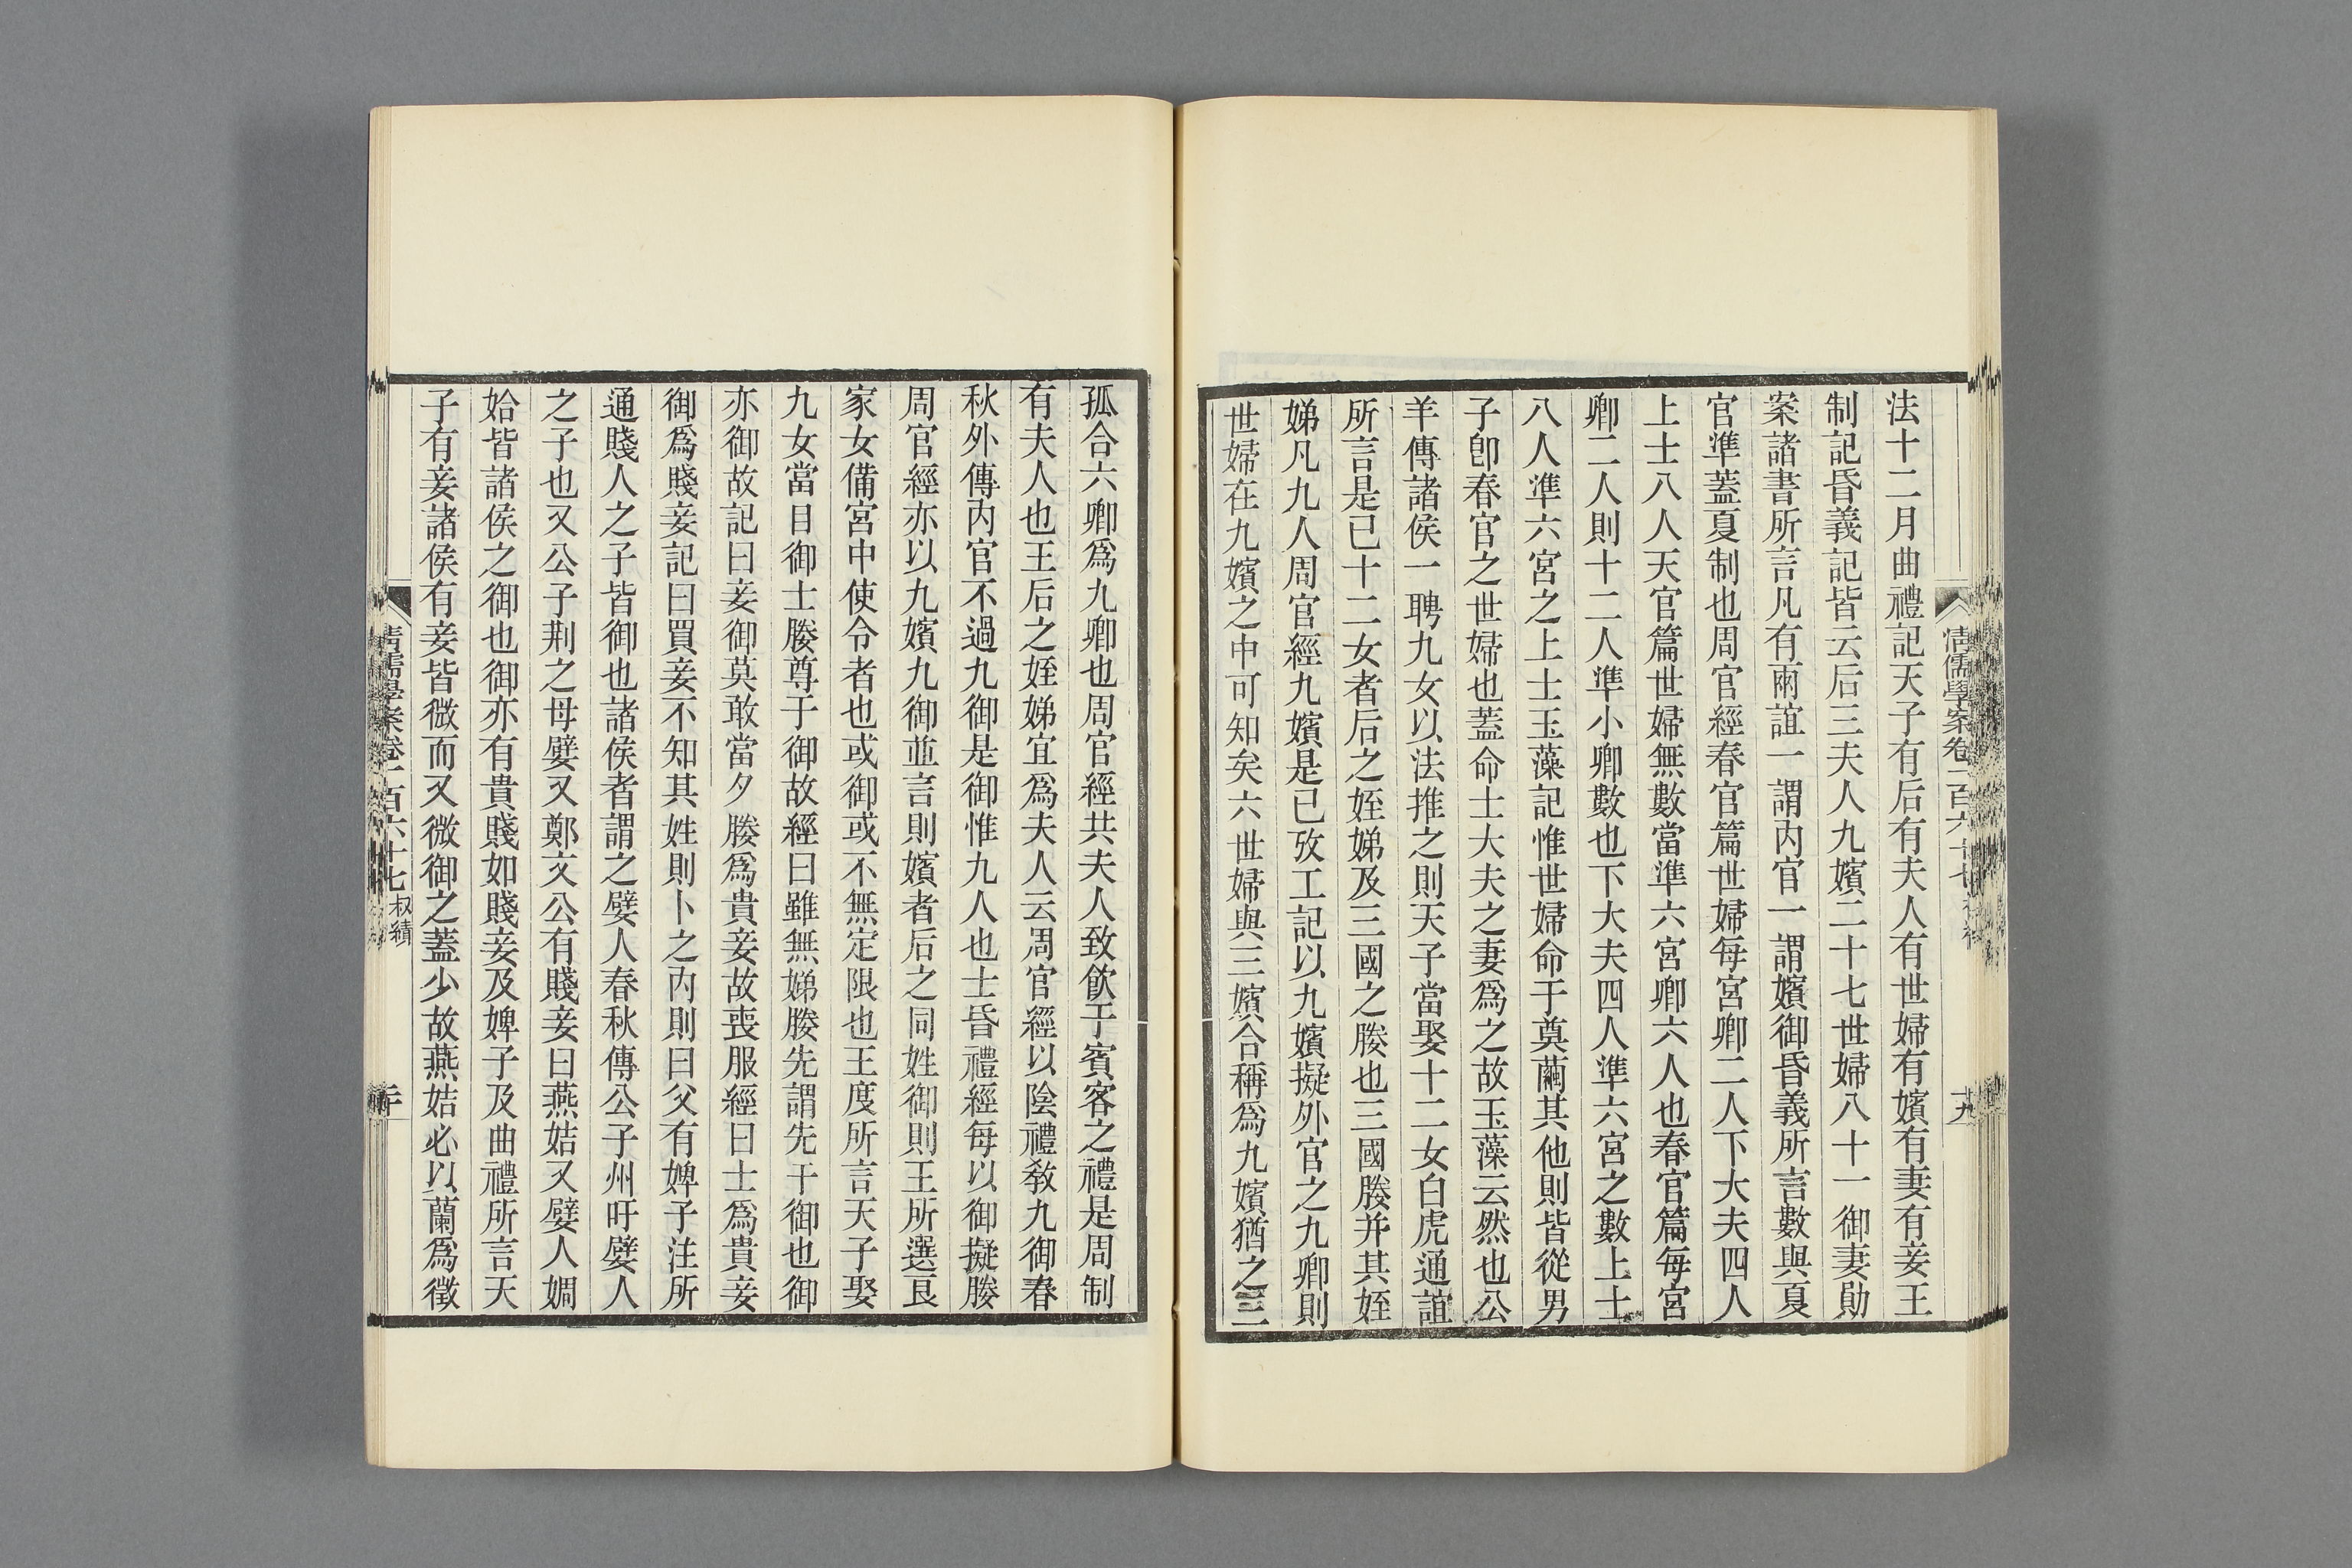 清儒學案卷一百六十七
十九
法十二月曲禮記天子有后有夫人有世婦有嬪有妻有妾王
制記昏義記皆云后三夫人九嬪二十七世婦八十一御妻勛
案諸書所言凡有兩誼一謂內官一謂嬪御昏義所言數與夏
官準蓋夏制也周官經春官篇世婦每宮卿二人下大夫四人
上士八人天官篇世婦無數當準六宮卿六人也春官篇每宮
卿二人則十二人準小卿數也下大夫四人準六宮之數上士
八人準六宮之上士玉藻記惟世婦命于奠繭其他則皆從男
子卽春官之世婦也蓋命士大夫之妻爲之故玉藻云然也公
羊傳諸侯一聘九女以法推之則天子當娶十二女白虎通誼
所言是已十二女者后之姪娣及三國之媵也三國媵并其姪
娣凡九人周官經九嬪是已攷工記以九嬪擬外官之九卿則
世婦在九嬪之中可知矣六世婦與三嬪合稱爲九嬪猶之三
孤合六卿爲九卿也周官經共夫人致飮于賓客之禮是周制
有夫人也王后之姪娣宜爲夫人云周官經以陰禮敎九御春
秋外傳內官不過九御是御惟九人也士昏禮經每以御擬媵
周官經亦以九嬪九御並言則嬪者后之同姓御則王所選良
家女備宮中使令者也或御或不無定限也王度所言天子娶
九女當目御士媵尊于御故經曰雖無娣媵先謂先于御也御
亦御故記曰妾御莫敢當夕媵爲貴妾故喪服經曰士爲貴妾
御爲賤妾記曰買妾不知其姓則卜之內則曰父有婢子注所
通賤人之子皆御也諸侯者謂之嬖人春秋傳公子州吁嬖人
之子也又公子荆之母嬖又鄭文公有賤妾曰燕姞又嬖人婤
姶皆諸侯之御也御亦有貴賤如賤妾及婢子及曲禮所言天
子有妾諸侯有妾皆微而又微御之蓋少故燕姞必以蘭爲徵
清儒學案卷一百六十七 叔績
二十